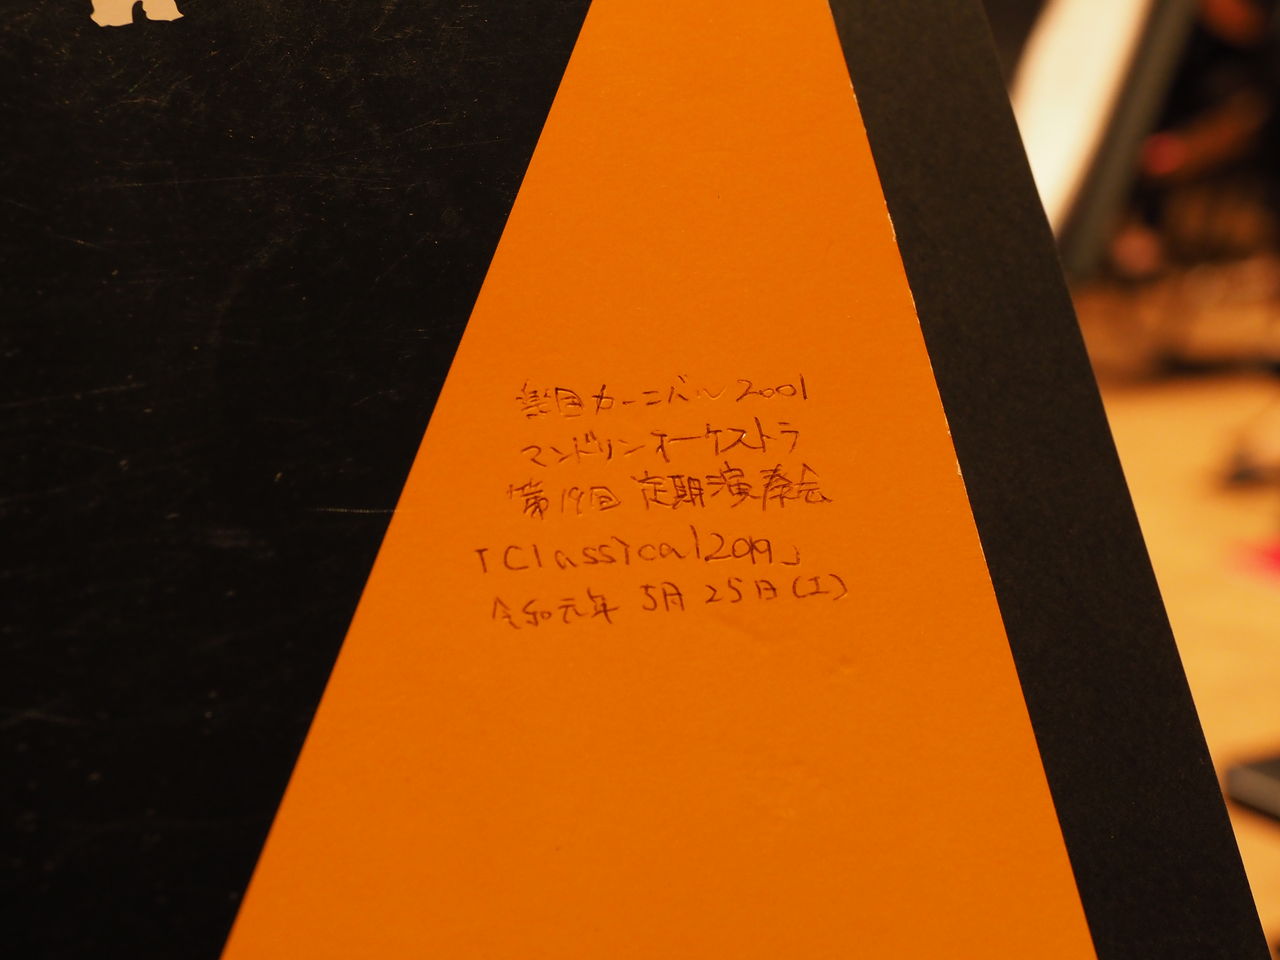 楽団カーニバル2001
マンドリンオーケストラ
第19回 定期演奏会
「Classical2019」
令和元年 5月25日(土)